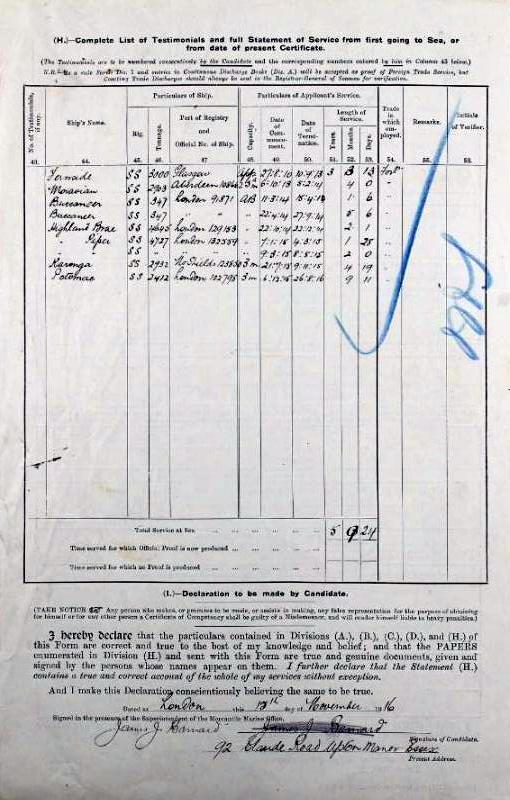 (H.)—Complete List of Testimonials and full Statement of Service from first going to Sea, or
from date of present Certificate.
(The Testimonials are to be numbered consecutively by the Candidate and the corresponding numbers entered by him in Column 43 below.)
N.B.—As a rule Form Dis. 1 and entries in Continuous Discharge Books (Dis. A.) will be accepted as proof of Foreign Trade Service, but
Coasting Trade Discharges should always be sent to the Registrar-General of Seamen for verification.
No. of Testimonials, if any. Ship's Name. Particulars of Ship. Particulars of Applicant's Service. Trade in which employed. Remarks. Initials of Verifier.
Rig. Tonnage. Port of Registry and Official No. of Ship. Capacity. Date of Commencement. Date of Termination. Length of Service. Years. Months. Days.
43. 44. 45. 46. 47. 48. 49. 50. 51. 52. 53. 54. 55. 56. 58.
SS 3000 Glasgow App 27.8.10 10.9.13 3 13 For
Moravian SS Aberdeen 6.10.13 5.2.14 4 0 "
Buccaneer SS 947 London 91871 AB 11.3.14 1 6 "
Buccaneer SS 947 " " 22.4.14 27.9.14 5 6 "
Highland Brae SS London 2 1 "
" Piper SS 4727 London 7.1.15 4.3.15 1 28 "
" SS " " 9.3.15 8.5.15 2 0 "
Karonga SS 2932 No Shields 3m 21.7.15 9.11.15 4 19 "
Potomac SS 2412 London 102795 3m 6.12.15 26.8.16 9 11 "
Total Service at Sea ... 5 9 24
Time served for which Official Proof is now produced ...
Time served for which no Proof is produced ...
(I.)—Declaration to be made by Candidate.
(TAKE NOTICE Any person who makes, or procures to be made, or assists in making, any false representation for the purpose of obtaining
for himself or for any other person a Certificate of Competency shall be guilty of a Misdemeanor, and will render himself liable to heavy penalties.)
I hereby declare that the particulars contained in Divisions (A.), (B.), (C.), (D.), and (H.) of
this Form are correct and true to the best of my knowledge and belief; and that the PAPERS
enumerated in Division (H.) and sent with this Form are true and genuine documents, given and
signed by the persons whose names appear on them. I further declare that the Statement (H.)
contains a true and correct account of the whole of my services without exception.
And I make this Declaration conscientiously believing the same to be true.
Dated at London this 13th day of November 1916
Signed in the presence of the Superintendent of the Mercantile Marine Office,
James J Barnard James J Barnard Signature of Candidate.
92 Claude Road Upton Manor Essex
Present Address.